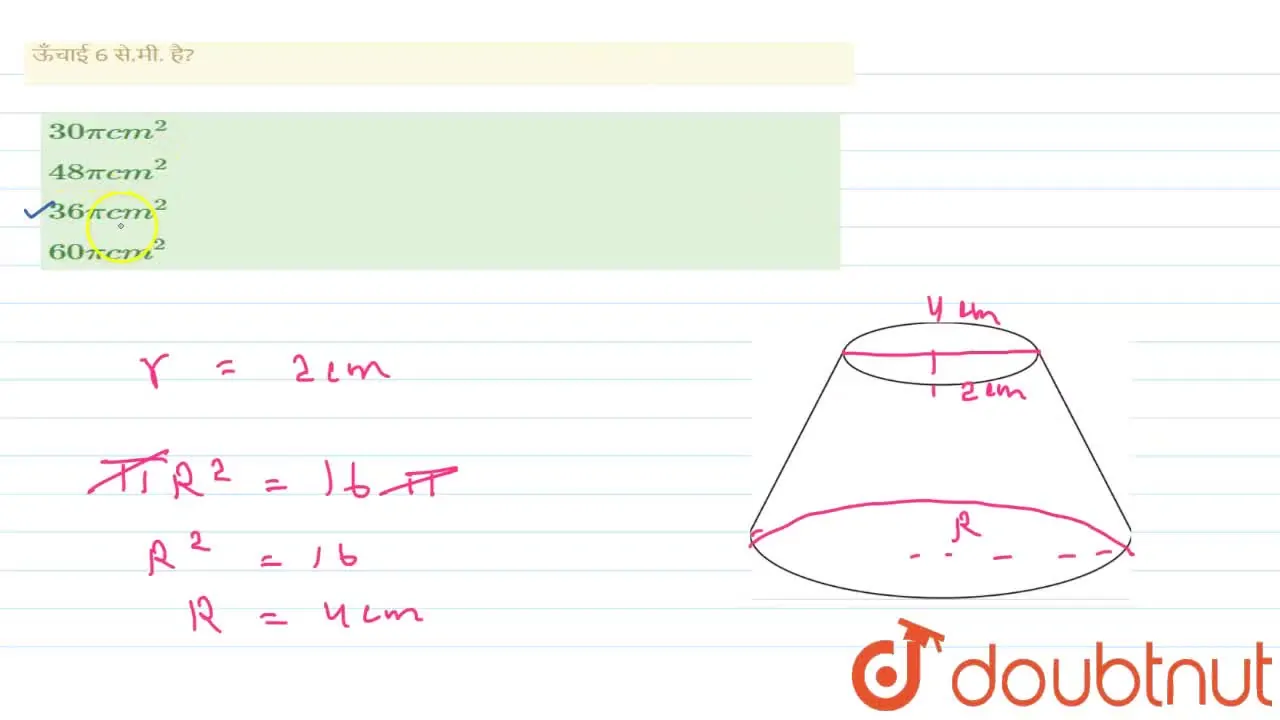 ऊँचाई 6 से.मी. है?
30πcm²
48πcm²
✓36πcm²
60πcm²
4 cm
2 cm
r = 2 cm
πR² = 16π
R² = 16
R = 4 cm
R
doubtnut